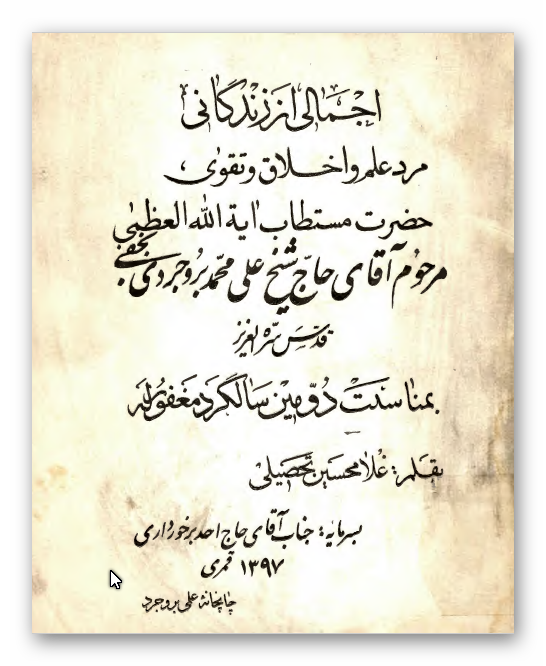 اجمالی از زندگانی
مرد علم و اخلاق و تقوی،
حضرت مستطاب آیة الله العظمی
مرحوم آقای حاج شیخ علی محمد بروجردی نجفی
قدس سره العزیز
بمناسبت دومین سالگرد مغفورله
بقلم: غلامحسین تحصیلی
بسرمایه: جناب آقای حاج احمد برخورداری
۱۳۹۷ قمری
چاپخانه علمی بروجرد